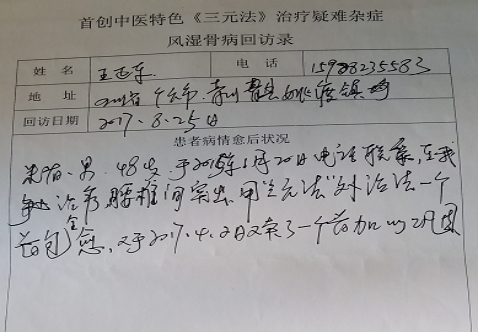 首创中医特色《三元法》治疗疑难杂症
风湿骨病回访录
姓 名 王 东 电 话 15988235583
地 址 四川省 广元市 青川 县 镇
回访日期 2017.8.25日
患者病情愈后状况
男.48岁.于2015年1月20日电话联系,至我
治 腰椎间突出.用"三元法"外治法一个
药包全愈,又于2017.4.2日又 了一个药加以巩固